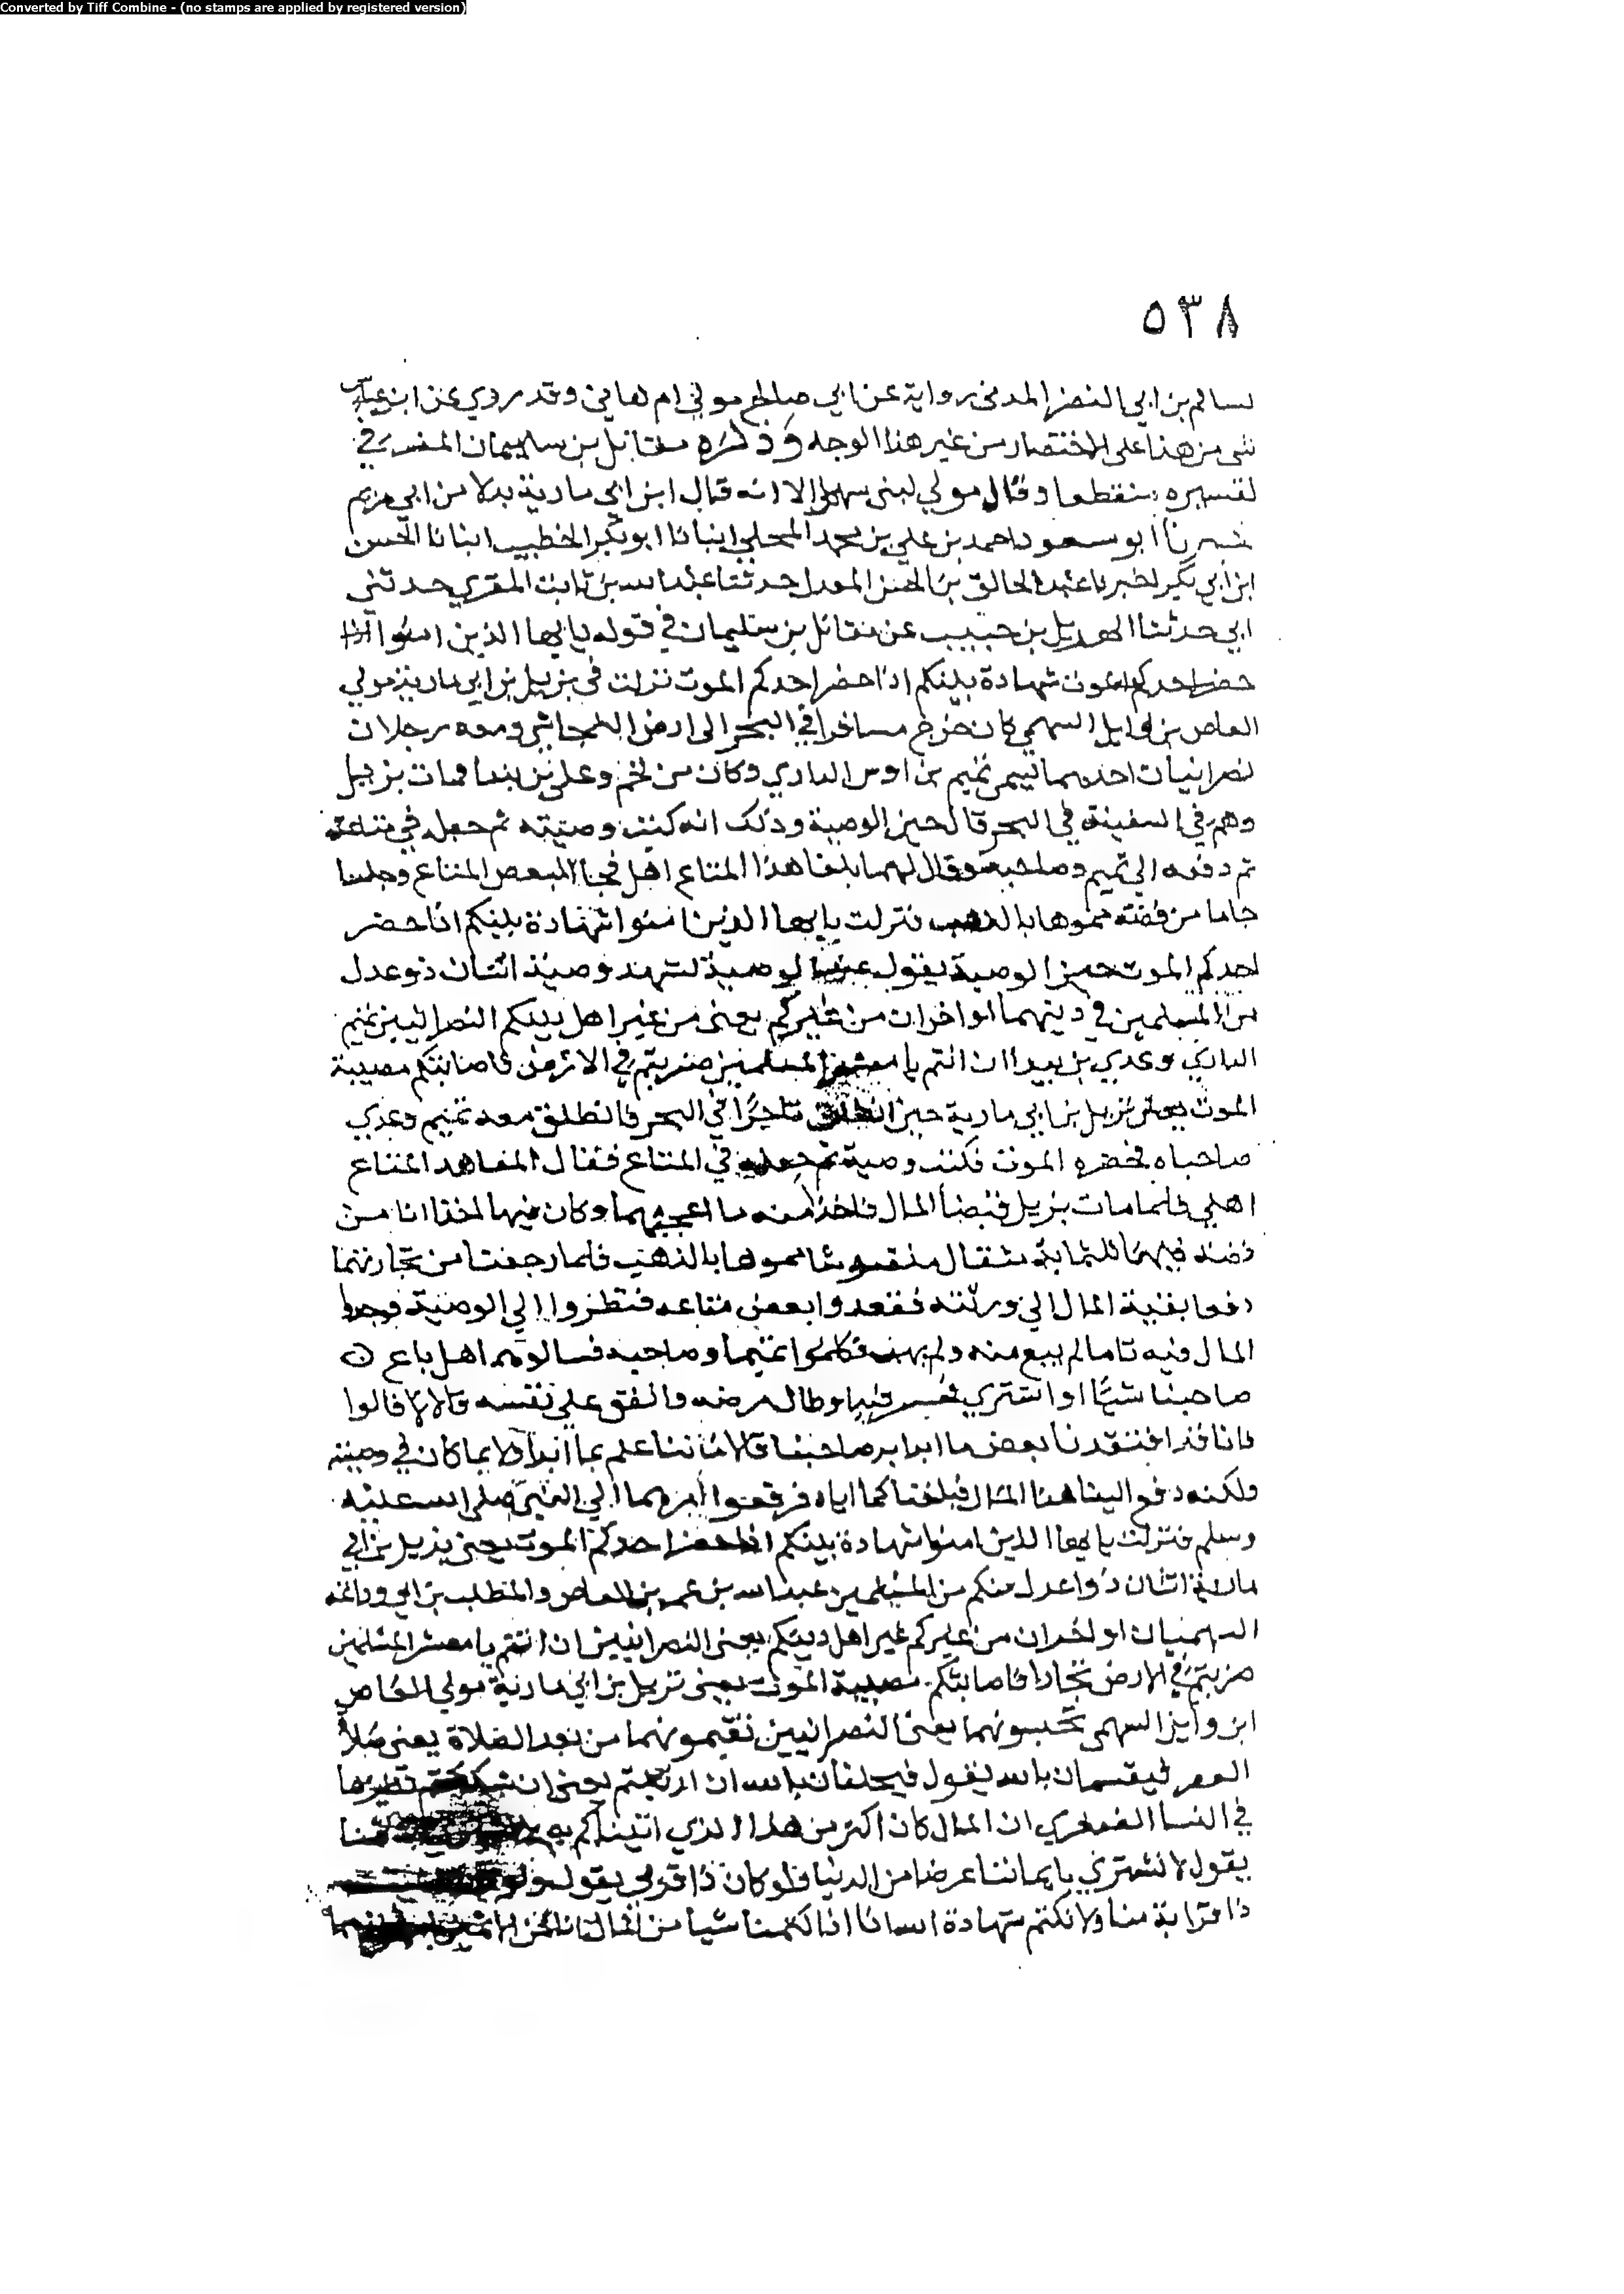 Converted by Tiff Combine - (no stamps are applied by registered version)
٥٣٨
لسالم بن ابي النضر المدني رواية عن ابي صالح مولي ام هاني وقد روي عن ابن عباس
شي من هذا على الاختصار من غير هذا الوجه وذكره مقاتل بن سليمان المفسر في
تفسيره منقطعا وقال مولي لبني سهم الا انه قال ابن ابي مارية بدلا من ابي مريم
ابو سعود احمد بن علي بن محمد المحلي انبانا ابو بكر الخطيب انبانا الحسن
ابن ابي بكر عبد الخالق بن الحسن المعدل حدثنا عبد الله بن ثابت المقري حدثني
ابي حدثنا الهذيل بن حبيب عن مقاتل بن سليمان في قوله يا يها الذين امنوا اذا
حضر احدكم الموت شهادة بينكم اذا حضر احدكم الموت نزلت في بزيل بن ابي مارية مولي
العاص بن وايل السهمي كان خرج مسافرا في البحر الى ارض النجاشي ومعه رجلان
نصرانيان احدهما يسمى تميم بن اوس الداري وكان من لخم وعدي بن بندا فمات بزيل
وهم في السفينة في البحر قال حين الوصية وذلك انه كتب وصيته ثم جعله في متاعه
ثم دفعه الي تميم وصاحبه وقال لهما بلغا هذا المتاع اهلي فجاآ ببعض المتاع وحبسا
جاما من فضة مموها بالذهب فنزلت يا يها الذين امنوا شهادة بينكم اذا حضر
احدكم الموت حين الوصية يقول عند الوصية لتشهد وصية اثنان ذو عدل
من المسلمين في دينهما او اخران من غيركم يعني من غير اهل دينكم النصرانيين تميم
الداري وعدي بن بيدا ان انتم يا معشر المسلمين ضربتم في الارض فاصابتكم مصيبة
الموت يعني بزيل بن ابي مارية حين انطلق تاجرا في البحر فانطلق معه تميم وعدي
صاحباه فحضره الموت فكتب وصيته ثم جعله في المتاع فقال ابلغا هذا المتاع
اهلي فلما مات بزيل قبضا المال فاخذا منه ما اعجبهما وكان فيها اخذا انا من
فضة فيها ثلثماية مثقال منقوشا مموها بالذهب فلما رجعا من تجارتهما
دفعا بقية المال الي ورثته ففقدوا بعض متاعه فنظروا الي الوصية فوجدوا
المال فيه تاما لم يبع منه ولم يهب فكلموا تميما وصاحبه فسالوهم اهل باع
صاحبنا شيًا او اشترى فخسر فيه او طال مرضه وانفق على نفسه قالا لا قالوا
فانا قد افتقدنا بعض ما ابدا به صاحبنا قالا ما لنا علم بما ابدا ولا بما كان في وصيته
ولكنه دفع الينا هذا المال فبلغناكما اياه فرفعوا امرهما الي النبي صلى الله عليه
وسلم فنزلت يا يها الذين امنوا شهادة بينكم اذا حضر احدكم الموت يعني بزيل بن ابي
مارية اثنان ذوا عدل منكم من المسلمين عبد الله بن عمرو بن العاص والمطلب بن ابي وداعة
السهميان او اخران من غيركم غير اهل دينكم يعني النصرانيين ان انتم يا معشر المسلمين
ضربتم في الارض تجارا فاصابتكم مصيبة الموت يعني بزيل بن ابي مارية مولي العاص
ابن وايل السهمي تحبسونهما يعني النصرانيين تقيمونهما من بعد الصلاة يعني صلاة
العصر فيقسمان بالله يقول فيحلفان بالله ان ارتبتم يعني ان شككتم نظيرها
في النسا القصرى ان المال كان اكثر من هذا الذي اتيناكم به ثمنا
يقول لا نشتري بايماننا عرضا من الدنيا ولو كان ذا قربى يقول ولو
ذا قرابة منا ولا نكتم شهادة الله انا اذا كتمنا شيا من المال انا لمن الاثمين